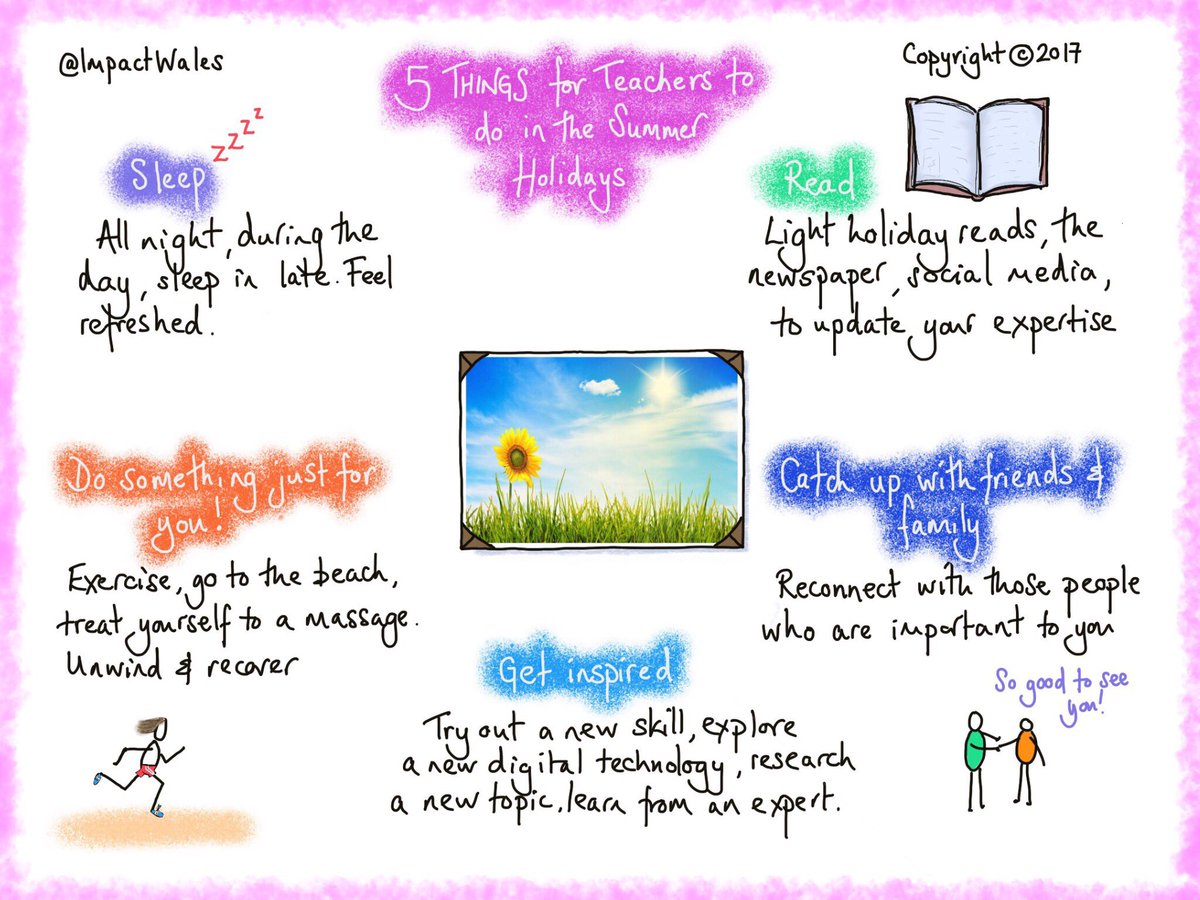 @ImpactWales
Copyright ©2017
5 THINGS for Teachers to
do in the Summer
Holidays
zzzz
Sleep
All night, during the
day, sleep in late. Feel
refreshed.
Read
Light holiday reads, the
newspaper, social media,
to update your expertise
Do something just for
you!
Exercise, go to the beach,
treat yourself to a massage.
Unwind & recover
Catch up with friends &
family
Reconnect with those people
who are important to you
So good to see
you!
Get inspired
Try out a new skill, explore
a new digital technology, research
a new topic, learn from an expert.